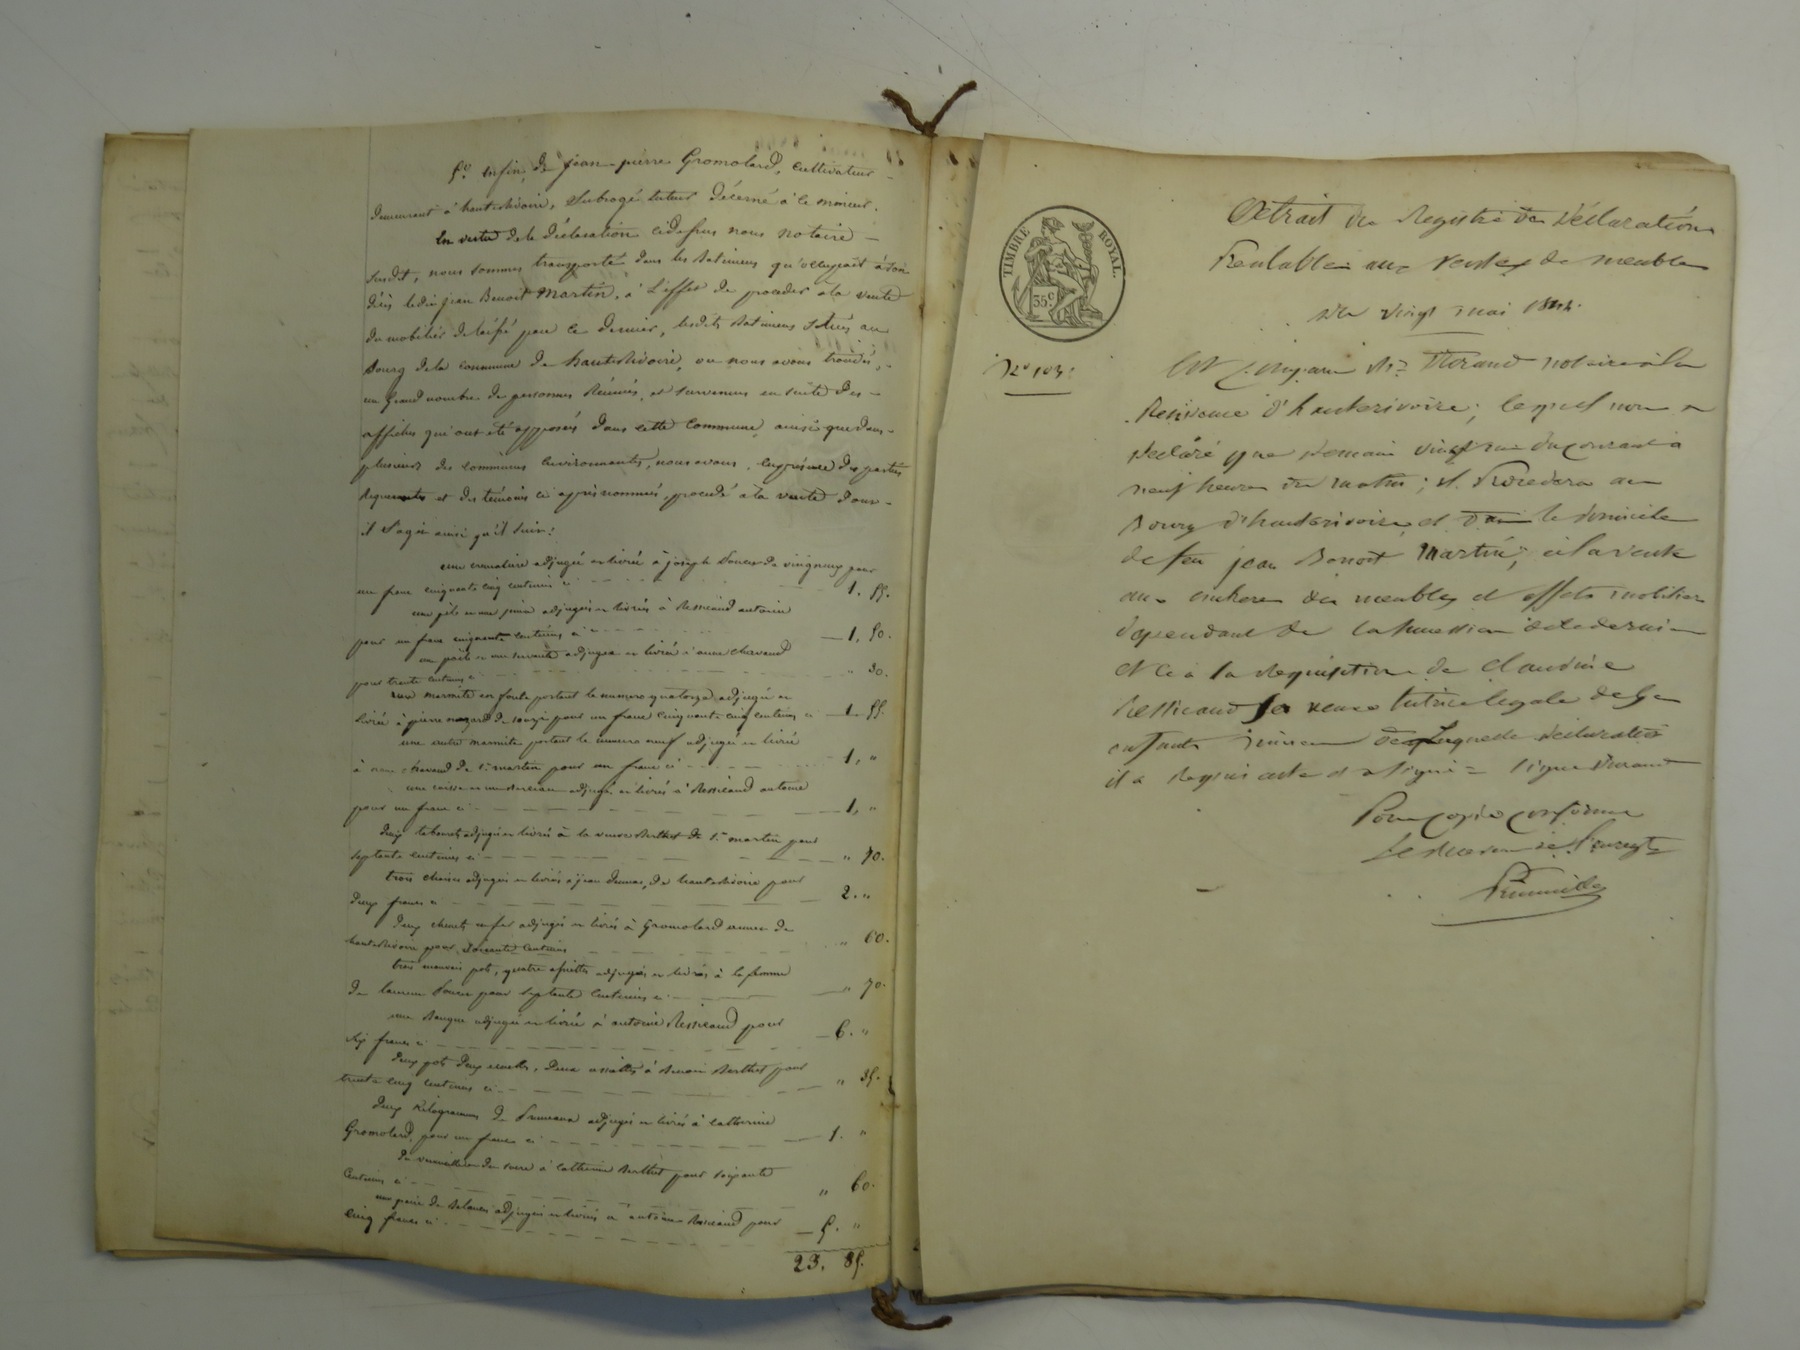 5º. enfin, de jean-pierre Gromolard, cultivateur
demeurant à hauterivoire, subrogé tuteur décerné à ce mineur.
En vertu de la déclaration cidessus nous notaire
susdit, nous sommes transporté dans les batimens qu'occupait à son
décès ledit jean Benoit Martin, à l'effet de proceder à la vente
du mobilier délaissé par ce dernier, lesdits batimens situés au
Bourg de la commune de hauterivoire, où nous avons trouvés,
un grand nombre de personnes réunies, et survenues en suite des
affiches qui ont été apposés dans cette commune, ainsi que dans
plusieurs des communes environnantes, nous avons, en présence des parties
requerantes et des témoins ci après nommés, procédé à la vente dont
il s'agit ainsi qu'il suit:
une cremalière adjugée et livrée à joseph pour
un franc cinquante cinq centimes ci 1. 55.
une adjugées et livrées à Ressicaud antoine
pour un franc cinquante centimes ci 1, 50.
un poële et une adjugés et livrés à anne chavand
pour trente centimes ci " 30.
une marmite en fonte portant le numero quatorze adjugée et
livrée à pierre de souzy pour un franc cinquante cinq centimes ci 1. 55.
une autre marmite portant le numero neuf adjugée et livrée
à anne chavand de St. martin pour un franc ci 1, "
une caisse et un adjugés et livrés à Ressicaud antoine
pour un franc ci 1, "
deux tabourets adjugés et livrés à la veuve Berthet de St. martin pour
septante centimes ci " 70.
trois chaises adjugées et livrées à jean dumas, de hauterivoire pour
deux francs ci 2. "
deux chenets en fer adjugés et livrés à Gromolard de
hauterivoire pour soixante centimes " 60.
trois mauvais pots, quatre assiettes adjugés et livrés à la femme
de laurent pour septante centimes ci " 70.
une adjugée et livrée à antoine Ressicaud pour
six francs ci 6. "
deux pots deux deux assiettes à Benoit Berthet pour
trente cinq centimes ci " 35.
deux kilogrammes de adjugés et livrés à catherine
Gromolard, pour un franc ci 1. "
du du sucre à catherine Berthet pour soixante
centimes ci " 60.
une paire de balances adjugées et livrées à antoine Ressicaud pour
cinq francs ci 5. "
23. 85.
TIMBRE ROYAL.
35c
Extrait du Registre des Déclarations
Préalables aux ventes de meubles
du vingt mai 1844.
Nº 103.
Est Comparu Me. Morand notaire à la
Residence d'hauterivoire, lequel nous a
déclaré que demain vingt un du courant à
neuf heures du matin, il Procedera au
Bourg d'hauterivoire, et dans le domicile
de feu jean Benoit Martin, à la vente
aux encheres des meubles et effets mobiliers
dependant de la succession de ce dernier
et ce à la requisition de claudine
Ressicaud sa veuve tutrice legale de ses
enfants mineurs de laquelle déclaration
il a requis acte et a signé = signé Morand
Pour copie conforme
Le Receveur de l'enregt.